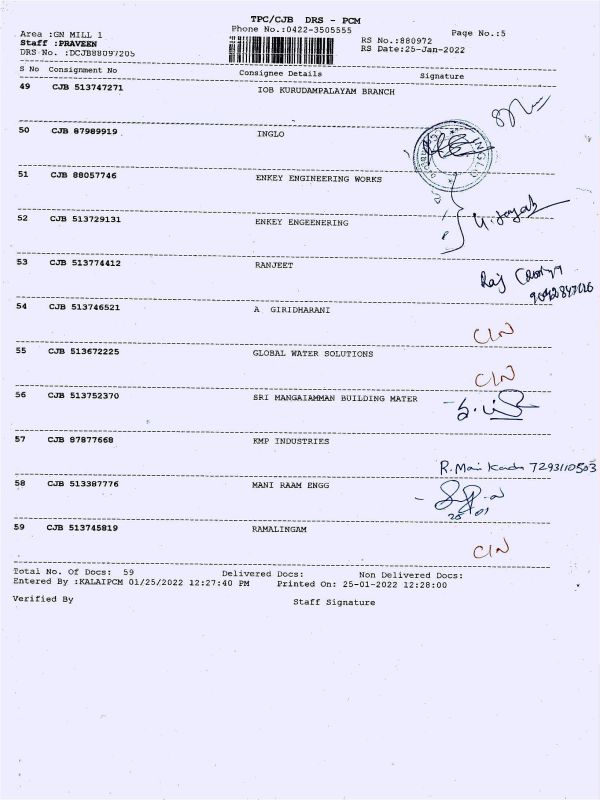 TPC/CJB DRS - PCM
Area :GN MILL 1 Phone No.:0422-3505555 Page No.:5
Staff :PRAVEEN RS No.:880972
DRS No. :DCJB88097205 RS Date:25-Jan-2022
S No Consignment No Consignee Details Signature
49 CJB 513747271 IOB KURUDAMPALAYAM BRANCH
50 CJB 87989919 INGLO
INGLO
51 CJB 88057746 ENKEY ENGINEERING WORKS
52 CJB 513729131 ENKEY ENGEENERING
53 CJB 513774412 RANJEET
Raj
54 CJB 513746521 A GIRIDHARANI
CIN
55 CJB 513672225 GLOBAL WATER SOLUTIONS
CIN
56 CJB 513752370 SRI MANGAIAMMAN BUILDING MATER
57 CJB 87877668 KMP INDUSTRIES
R. Mani 7293110503
58 CJB 513387776 MANI RAAM ENGG
59 CJB 513745819 RAMALINGAM
CIN
Total No. Of Docs: 59 Delivered Docs: Non Delivered Docs:
Entered By :KALAIPCM 01/25/2022 12:27:40 PM Printed On: 25-01-2022 12:28:00
Verified By Staff Signature